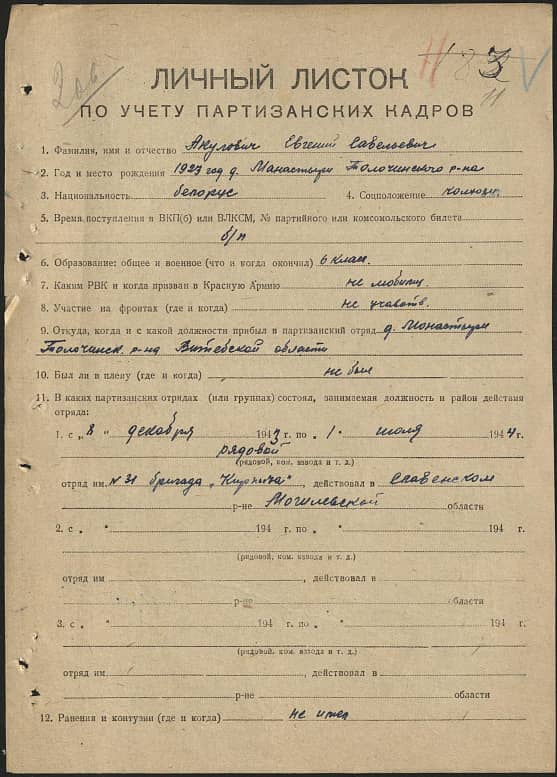 11
ЛИЧНЫЙ ЛИСТОК
ПО УЧЕТУ ПАРТИЗАНСКИХ КАДРОВ
1. Фамилия, имя и отчество Акулович Евгений Савельевич
2. Год и место рождения 1927 год д. Манастыри Толочинского р-на
3. Национальность белорус 4. Соцположение колхозн.
5. Время поступления в ВКП(б) или ВЛКСМ, № партийного или комсомольского билета
б/п
6. Образование: общее и военное (что и когда окончил) 6 класс.
7. Каким РВК и когда призван в Красную Армию не мобилиз.
8. Участие на фронтах (где и когда) не участв.
9. Откуда, когда и с какой должности прибыл в партизанский отряд д. Монастыри
Толочинск. р-на Витебской области
10. Был ли в плену (где и когда) не был
11. В каких партизанских отрядах (или группах) состоял, занимаемая должность и район действия
отряда:
1. с „ 8 " декабря 1943 г. по „ 1 " июля 1944 г.
рядовой
(рядовой, ком. взвода и т. д.)
отряд им. № 31 бригада „Кирпича", действовал в Славенском
р-не Могилевской области
2. с „ " 194 г. по „ " 194 г.
(рядовой, ком. взвода и т. д.)
отряд им , действовал в
р-не области
3. с „ " 194 г. по „ " 194 г.
(рядовой, ком. взвода и т. д.)
отряд им. , действовал в
р-не области
12. Ранения и контузии (где и когда) не имел